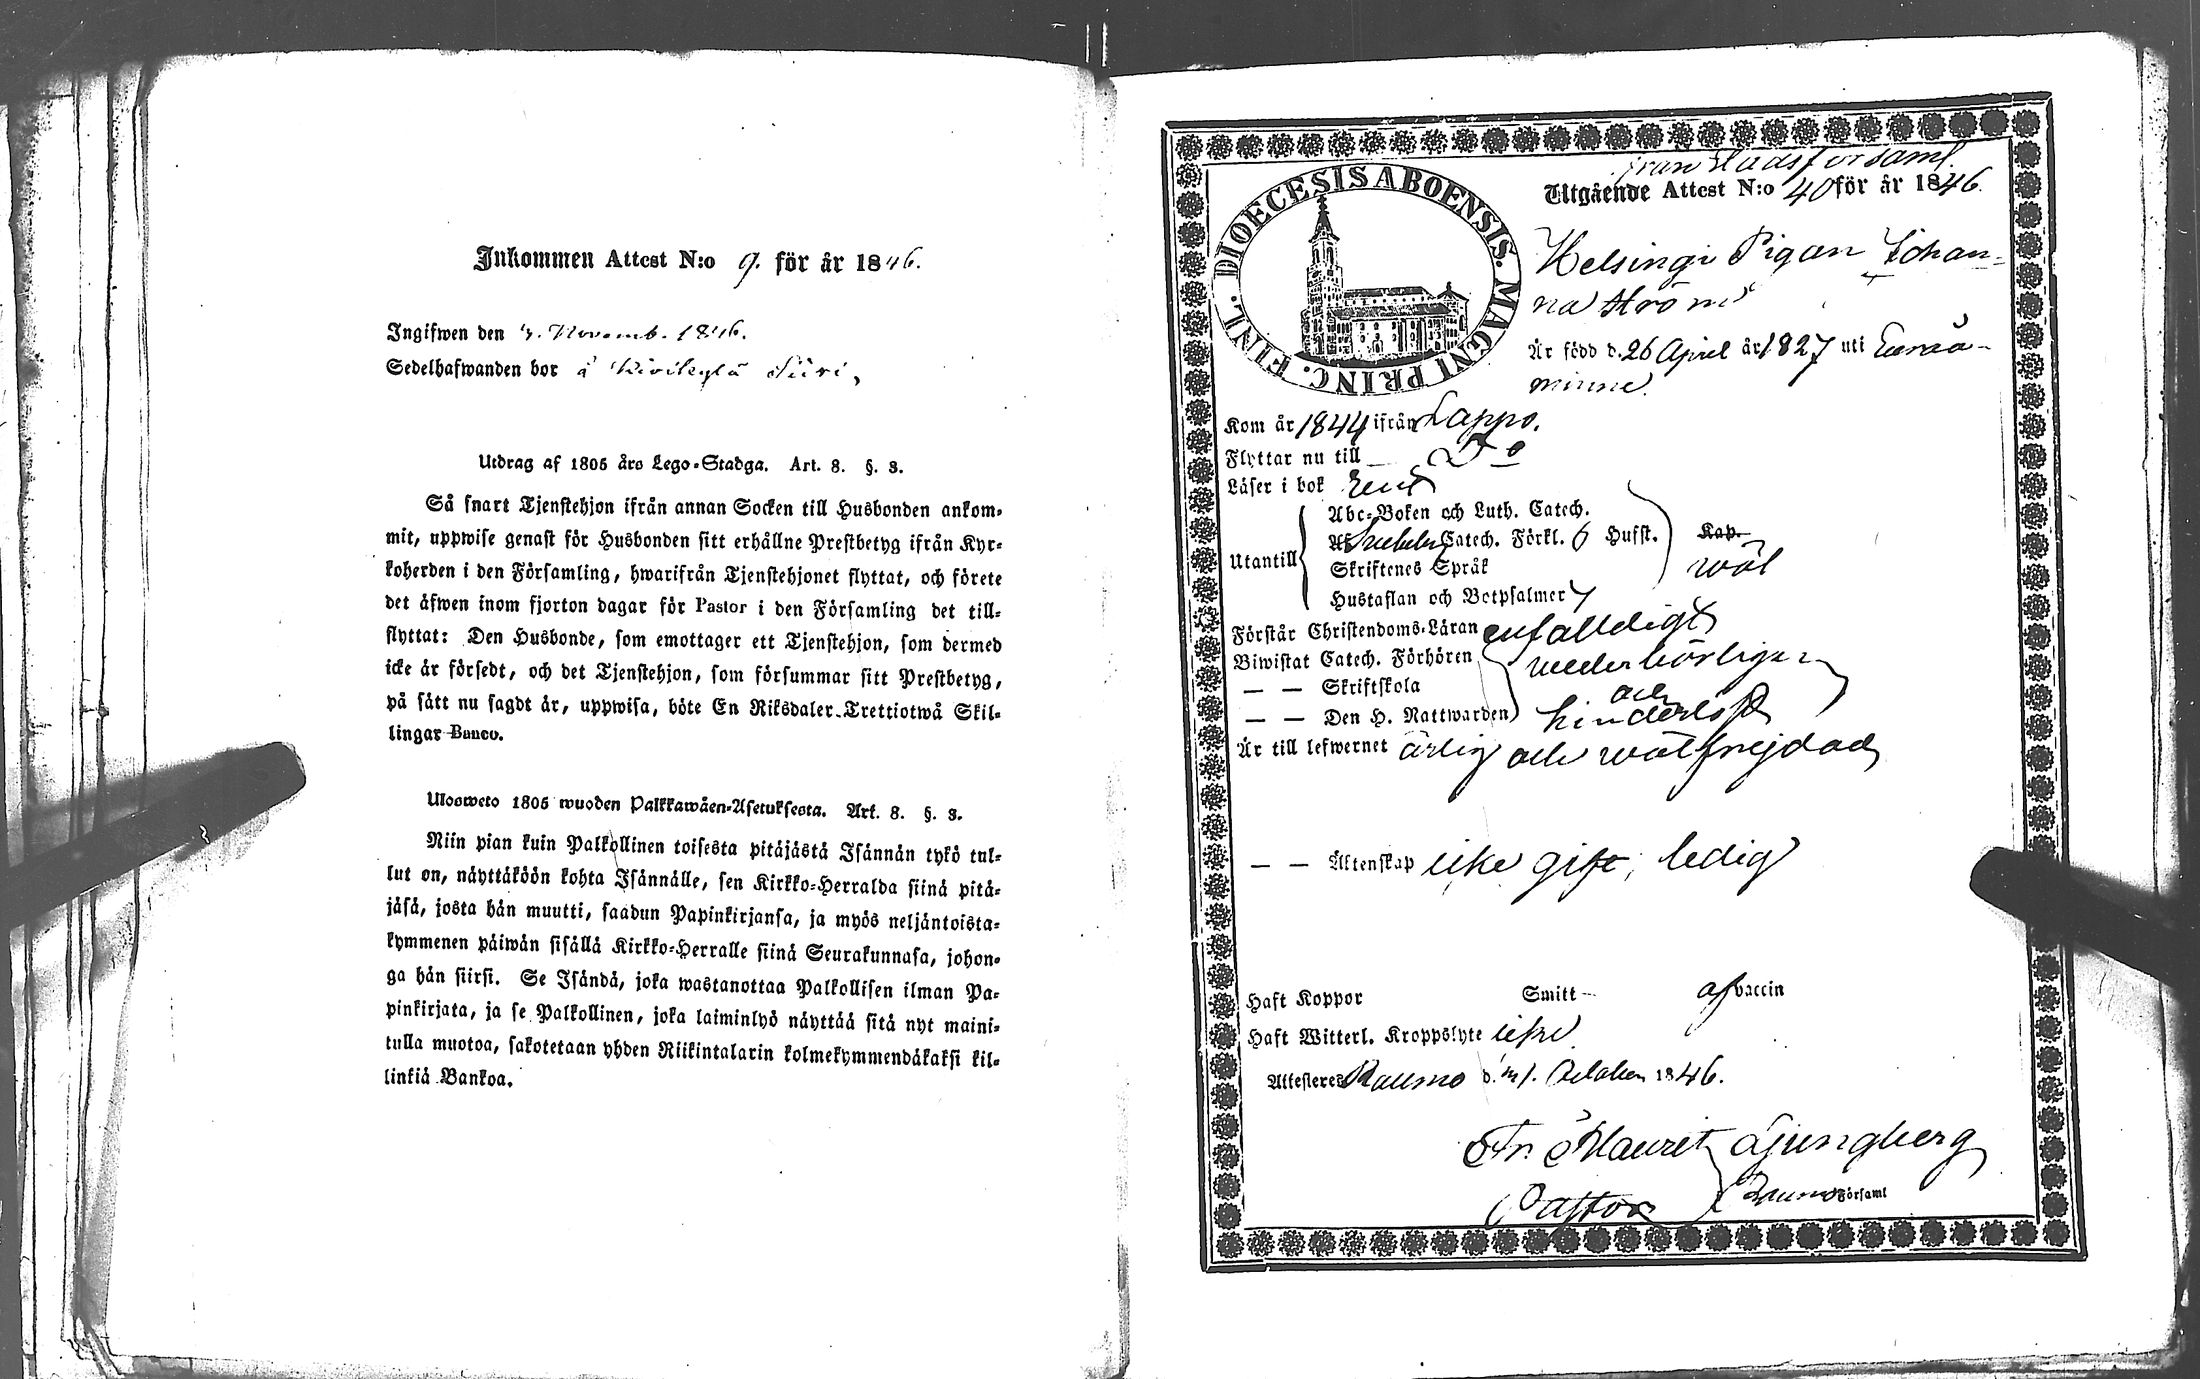 Inkommen Attest N:o 9. för år 1846.
Ingifwen den 4. Novemb. 1846.
Sedelhafwanden bor å Kivikylä Siiri,
Utdrag af 1805 års Lego-Stadga. Art. 8. §. 3.
Så snart Tjenstehjon ifrån annan Socken till Husbonden ankom-
mit, uppwise genast för Husbonden sitt erhållne Prestbetyg ifrån Kyr-
koherden i den Församling, hwarifrån Tjenstehjonet flyttat, och förete
det äfwen inom fjorton dagar för Pastor i den Församling det till-
flyttat: Den Husbonde, som emottager ett Tjenstehjon, som dermed
icke är försedt, och det Tjenstehjon, som försummar sitt Prestbetyg,
på sätt nu sagdt är, uppwisa, böte En Riksdaler Trettiotwå Skil-
lingar Banco.
Ulosweto 1805 wuoden Palkkawäen-Asetuksesta. Art. 8. §. 3.
Niin pian kuin Palkollinen toisesta pitäjästä Isännän tykö tul-
lut on, näyttäköön kohta Isännälle, sen Kirkko-Herralda siinä pitä-
jäsä, josta hän muutti, saadun Papinkirjansa, ja myös neljäntoista-
kymmenen päiwän sisällä Kirkko-Herralle siinä Seurakunnasa, johon-
ga hän siirsi. Se Isändä, joka wastanottaa Palkollisen ilman Pa-
pinkirjata, ja se Palkollinen, joka laiminlyö näyttää sitä nyt maini-
tulla muotoa, sakotetaan yhden Riikintalarin kolmekymmendäkaksi kil-
linkiä Bankoa.
från Stadsförsaml.
Utgående Attest N:o 40 för år 1846.
DIOECESIS ABOENSIS. MAGNI PRINC. FINL.
Helsingi Pigan Johan-
na Ström
Är född d. 26 April år 1827 uti Euraå-
minne.
Kom år 1844 ifrån Lappo.
Flyttar nu till D:o
Läser i bok rent
Abc-Boken och Luth. Catech.
Svebelii Catech. Förkl. 6 Hufst. Kap.
Utantill Skriftenes Språk wäl
Hustaflan och Botpsalmer 7
Förstår Christendoms-Läran enfalldigt
Biwistat Catech. Förhören wederbörligen
— — Skriftskola och
— — Den H. Nattwarden hinderlöst
Är till lefwernet ärlig och wälfrejdad
— — Äktenskap icke gift, ledig
Haft Koppor Smitt- af vaccin
Haft Witterl. Kroppslyte icke
Attesteres Raumo d. 1. October 1846.
Fr. Mauret Ljungberg
Pastor Raumo Församl